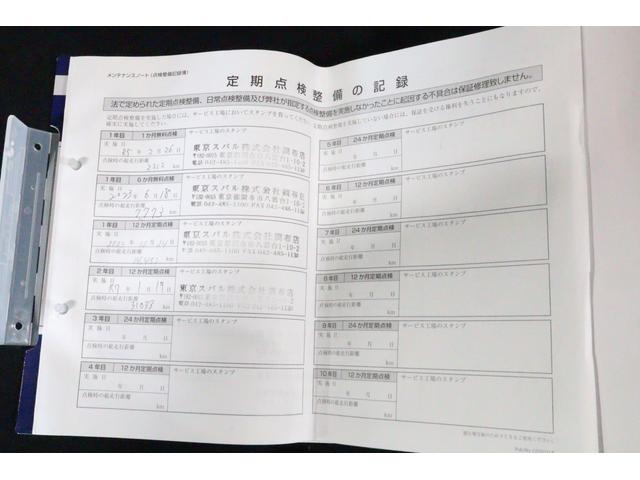 メンテナンスノート(点検整備記録簿)
定期点検整備の記録
法で定められた定期点検整備、日常点検整備及び弊社が指定する点検整備を実施しなかったことに起因する不具合は保証修理致しません。
定期点検整備を実施した場合には、サービス工場においてスタンプを貰ってください。
確実に実施してください。
定期点検整備を実施していない場合には、保証を受ける権利を失うことにもなりますので、
1年目 1か月無料点検 サービス工場のスタンプ
実施日
R5年2月26日
点検時の総走行距離
2312 km
東京スバル株式会社調布店
〒182-0015 東京都調布市八雲台1-10-2
1年目 6か月無料点検 サービス工場のスタンプ
実施日
2023年6月18日
点検時の総走行距離
7773 km
東京スバル株式会社調布店
〒182-0015 東京都調布市八雲台1-10-2
1年目 12か月定期点検 サービス工場のスタンプ
実施日
点検時の総走行距離
km
東京スバル株式会社調布店
〒182-0015
東京都調布市八雲台1-10-2
2年目 12か月定期点検 サービス工場のスタンプ
実施日
R7年1月19日
点検時の総走行距離
km
東京スバル株式会社調布店
〒182-0015
東京都調布市八雲台1-10-2
3年目 24か月定期点検 サービス工場のスタンプ
実施日
年 月 日
点検時の総走行距離
km
4年目 12か月定期点検 サービス工場のスタンプ
実施日
年 月 日
点検時の総走行距離
km
5年目 24か月定期点検 サービス工場のスタンプ
実施日
年 月 日
点検時の総走行距離
km
6年目 12か月定期点検 サービス工場のスタンプ
実施日
年 月 日
点検時の総走行距離
km
7年目 24か月定期点検 サービス工場のスタンプ
実施日
年 月 日
点検時の総走行距離
km
8年目 12か月定期点検 サービス工場のスタンプ
実施日
年 月 日
点検時の総走行距離
km
9年目 24か月定期点検 サービス工場のスタンプ
実施日
年 月 日
点検時の総走行距離
km
10年目 12か月定期点検 サービス工場のスタンプ
実施日
年 月 日
点検時の総走行距離
km